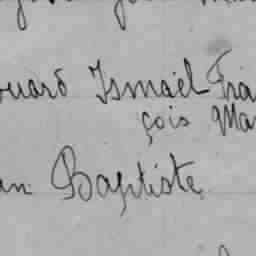 ouard Ismaël Fra
çois Ma
an Baptiste